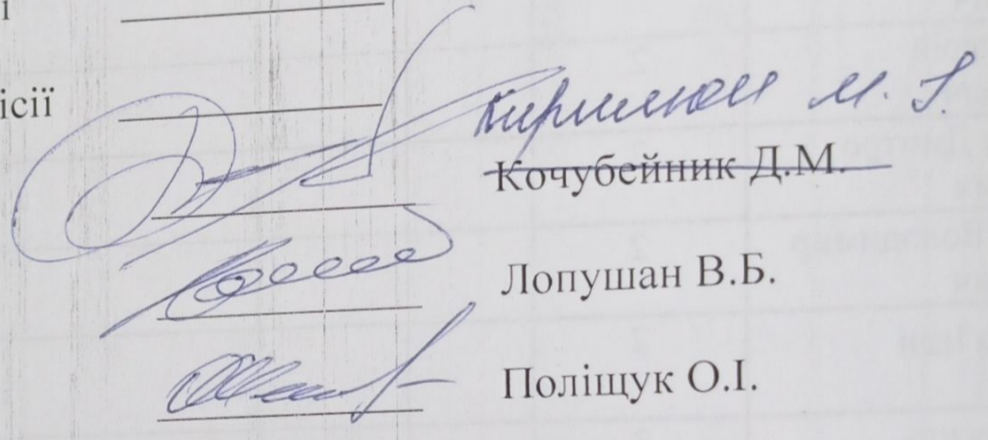 і
ісії
Кирилюк М. І.
Кочубейник Д.М.
Лопушан В.Б.
Поліщук О.І.